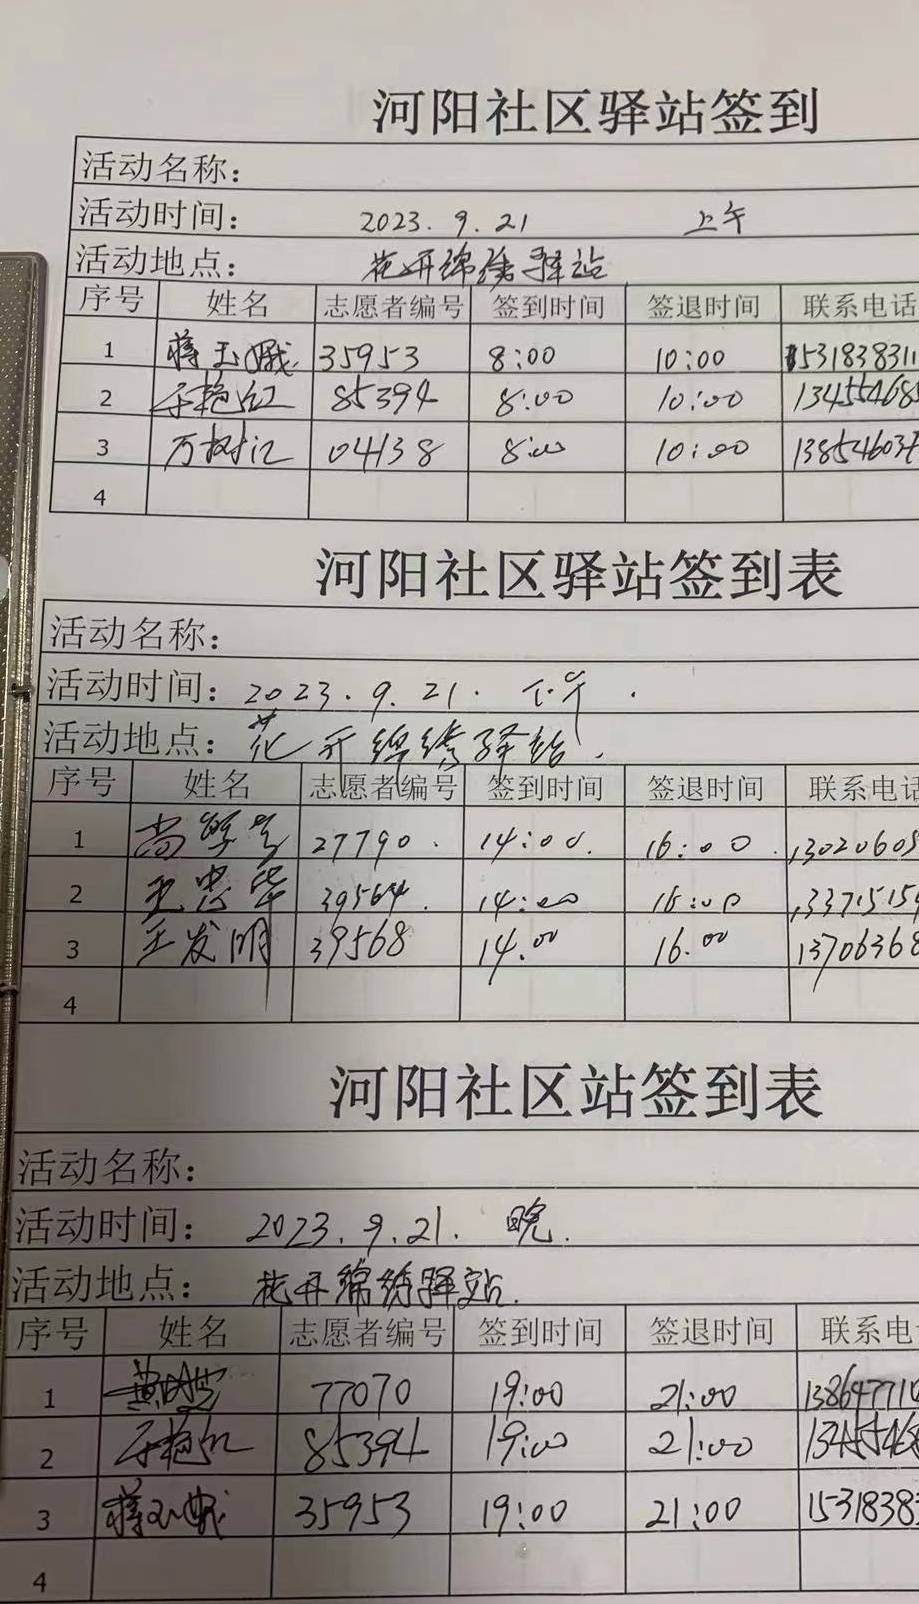 河阳社区驿站签到
活动名称：
活动时间： 2023.9.21 上午
活动地点： 花开绵绣驿站
序号 姓名 志愿者编号 签到时间 签退时间 联系电话
1 蒋玉娥 35953 8:00 10:00 1531838311
2 于艳红 85394 8:00 10:00 134554685
3 万树江 04138 8:00 10:00
4
河阳社区驿站签到表
活动名称：
活动时间：2023.9.21. 下午.
活动地点：花开绵绣驿站.
序号 姓名 志愿者编号 签到时间 签退时间 联系电话
1 27790. 14:00. 16:00. 13020609
2 王忠华 39564. 14:00 16:00
3 王发明 39568 14.00 16.00 13706368
4
河阳社区站签到表
活动名称：
活动时间： 2023.9.21. 晚.
活动地点： 花开绵绣驿站.
序号 姓名 志愿者编号 签到时间 签退时间 联系电
1 77070 19:00 21:00
2 于艳红 85394 19:00 21:00
3 蒋玉娥 35953 19:00 21:00 15318383
4